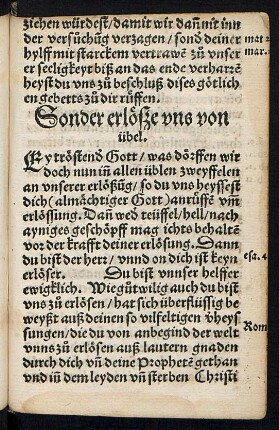 ziehen würdest / damit wir dañ nit inn
der versůchūg verzagen / sonđ deiner
hylff mit starckem vertrawē zů vnser
er seeligkeyt biß an das ende verharrē
heyst du vns zů beschluß dises götlich
en gebetts zů dir rüffen.
Sonder erlösze vns von
übel.
EY tröstenđ Gott / was dörffen wir
doch nun iñ allen üblen zweyffelen
an vnserer erlößūg / so du vns heyssest
dich (almächtiger Gott) anrůffē vm̄
erlössung. Dañ weđ teüffel / hell / nach
ayniges geschöpff mag ichts behaltē
vor der krafft deiner erlösung. Dann
du bist der herr / vnnd on dich ist keyn
erlöser. Du bist vnnser helffer
ewigklich. Wie gütwilig auch du bist
vns zů erlösen / hat sich überflüssig be
weyßt auß deinen so vilfeltigen vheys
sungen / die du von anbegind der welt
vnns zů erlösen auß lautern gnaden
durch dich vñ deine Prophetē gethan
vnd iñ dem leyden vñ sterben Christi
mat 2
mar.
esa. 4
Rom